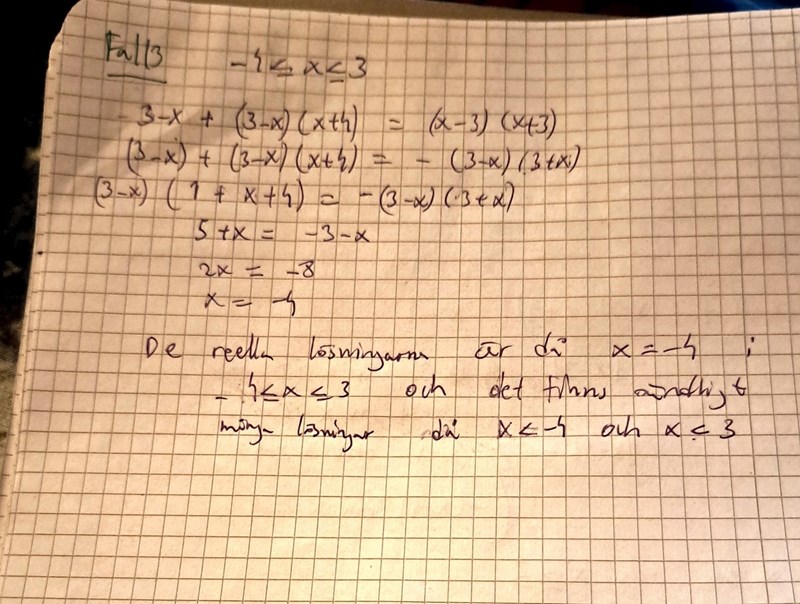 Fall 3 -4 ≤ x ≤ 3
3-x + (3-x)(x+4) = (x-3)(x+3)
(3-x) + (3-x)(x+4) = - (3-x)(3+x)
(3-x) (1 + x+4) = -(3-x)(3+x)
5+x = -3-x
2x = -8
x = -4
De reella lösningarna är då x = -4 i
-4 ≤ x ≤ 3 och det finns oändligt
många lösningar då x < -4 och x < 3